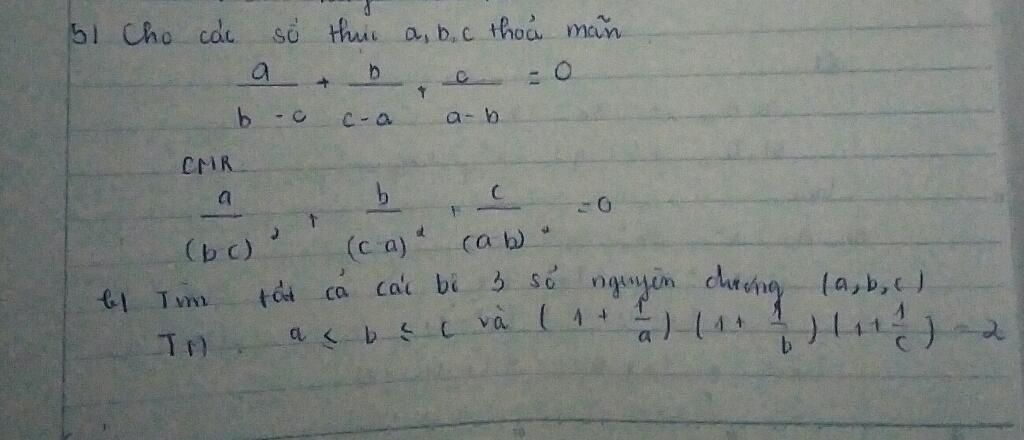 5) Cho các số thực a, b, c thoả mãn
a/(b-c) + b/(c-a) + c/(a-b) = 0
CMR
a/(b-c)² + b/(c-a)² + c/(a-b)² = 0
6) Tìm tất cả các bộ 3 số nguyên dương (a,b,c)
TM. a ≤ b ≤ c và (1 + 1/a)(1 + 1/b)(1 + 1/c) = 2